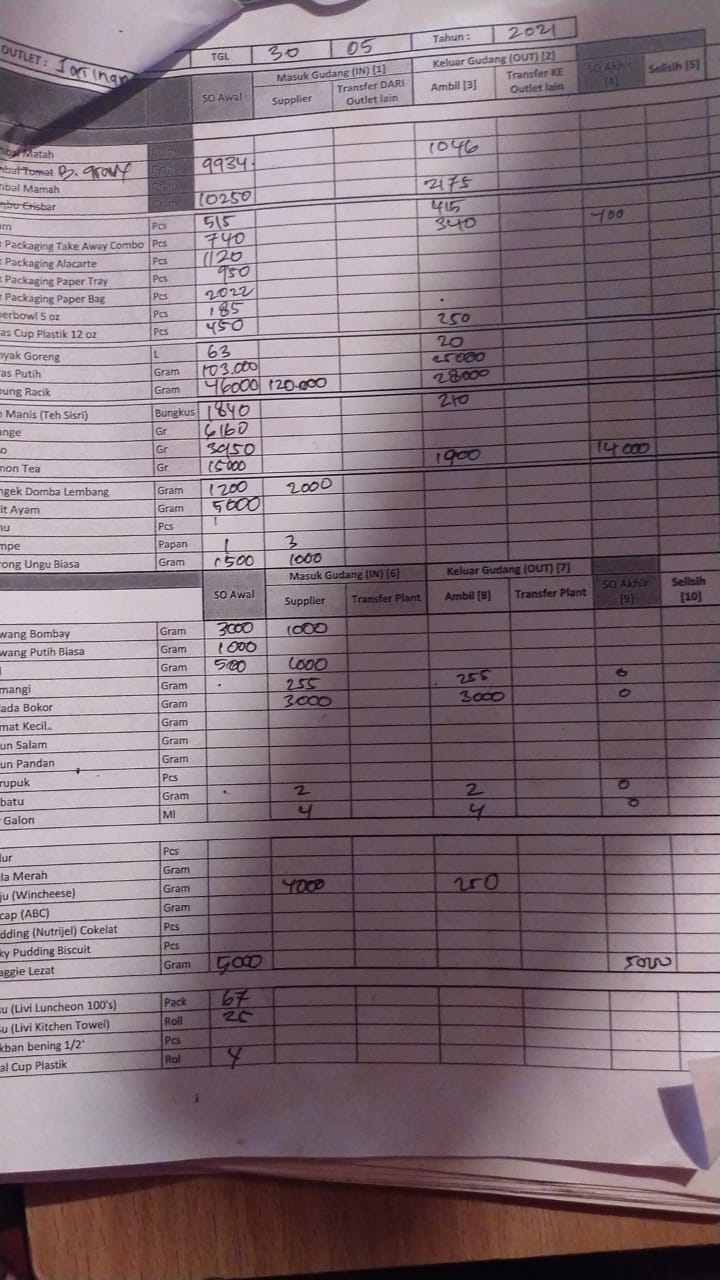 OUTLET : Jatingan
TGL 30 05 Tahun : 2021
SO Awal Masuk Gudang (IN) [1] Keluar Gudang (OUT) [2] SO Akhir [4] Selisih [5]
Supplier Transfer DARI Outlet lain Ambil [3] Transfer KE Outlet lain
mbal Matah Gram 1046
mbal Tomat B. gravy Gram 9934.
mbal Mamah Gram 2175
mbu Crisbar Gram 10250
am Pcs 515 415
Packaging Take Away Combo Pcs 740 340 400
Packaging Alacarte Pcs 1120
Packaging Paper Tray Pcs 950
Packaging Paper Bag Pcs 2022
perbowl 5 oz Pcs 185
as Cup Plastik 12 oz Pcs 450 250
nyak Goreng L 63 20
as Putih Gram 103.000 25000
pung Racik Gram 46000 120.000 28000
h Manis (Teh Sisri) Bungkus 1840 210
ange Gr 6160
o Gr 3950
mon Tea Gr 15000 1900 14000
ngek Domba Lembang Gram 1200 2000
it Ayam Gram 5000
hu Pcs
mpe Papan 1 3
rong Ungu Biasa Gram 1500 1000
SO Awal Masuk Gudang (IN) [6] Keluar Gudang (OUT) [7] SO Akhir [9] Selisih [10]
Supplier Transfer Plant Ambil [8] Transfer Plant
wang Bombay Gram 3000 1000
wang Putih Biasa Gram 1000
Gram 500 1000
mangi Gram 255 255 0
ada Bokor Gram 3000 3000 0
mat Kecil. Gram
un Salam Gram
un Pandan Gram
rupuk Pcs
batu Gram 2 2 0
Galon Ml 4 4 0
lur Pcs
la Merah Gram
ju (Wincheese) Gram 4000 250
cap (ABC) Gram
dding (Nutrijel) Cokelat Pcs
ky Pudding Biscuit Pcs
aggie Lezat Gram 5000 5000
su (Livi Luncheon 100's) Pack 67
su (Livi Kitchen Towel) Roll 25
kban bening 1/2" Pcs
al Cup Plastik Rol 4